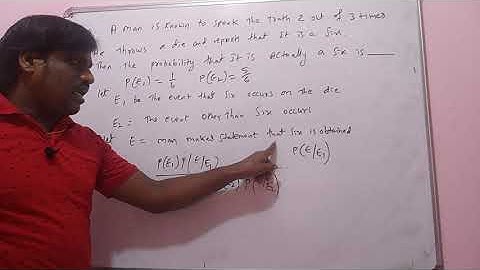 A man is known to speak the truth 2 out of 3 times
He throws a die and reports that it is a six.
Then the probability that it is actually a six is ____
P(E1) = 1/6 P(E2) = 5/6
let E1 be the event that six occurs on the die
E2 = the event other than six occurs
let E = man makes statement that six is obtained
P(E1) P(E/E1) P(E/E1)